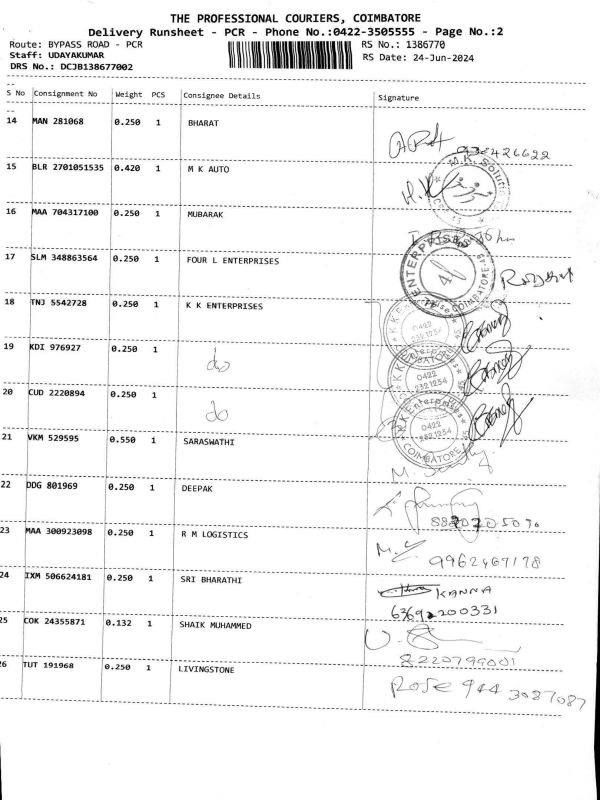 THE PROFESSIONAL COURIERS, COIMBATORE
Delivery Runsheet - PCR - Phone No.:0422-3505555 - Page No.:2
Route: BYPASS ROAD - PCR RS No.: 1386770
Staff: UDAYAKUMAR RS Date: 24-Jun-2024
DRS No.: DCJB138677002
S No Consignment No Weight PCS Consignee Details Signature
14 MAN 281068 0.250 1 BHARAT
15 BLR 2701051535 0.420 1 M K AUTO
M.K. Solutions
16 MAA 704317100 0.250 1 MUBARAK
17 SLM 348863564 0.250 1 FOUR L ENTERPRISES
ENTERPRISES COIMBATORE
4L
18 TNJ 5542728 0.250 1 K K ENTERPRISES
K K Enterprises COIMBATORE
0422
232 1254
19 KDI 976927 0.250 1 do
K K Enterprises
0422
232 1254
20 CUD 2220894 0.250 1 do
K K Enterprises COIMBATORE
0422
21 VKM 529595 0.550 1 SARASWATHI
22 DDG 801969 0.250 1 DEEPAK
23 MAA 300923098 0.250 1 R M LOGISTICS
9962467178
24 IXM 506624181 0.250 1 SRI BHARATHI
KANNA
63692200331
25 COK 24355871 0.132 1 SHAIK MUHAMMED
8220799001
26 TUT 191968 0.250 1 LIVINGSTONE
ROSE 944 3087087